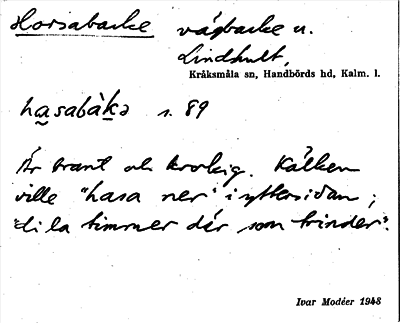 Horsabacke vägbacke n.
Lindhult,
Kråksmåla sn, Handbörds hd, Kalm. l.
hasabàkə s. 89
Är brant och krokig. Kälken
ville "hasa ner" i yttersidan;
di la timmer där som hinder".
Ivar Modéer 1948